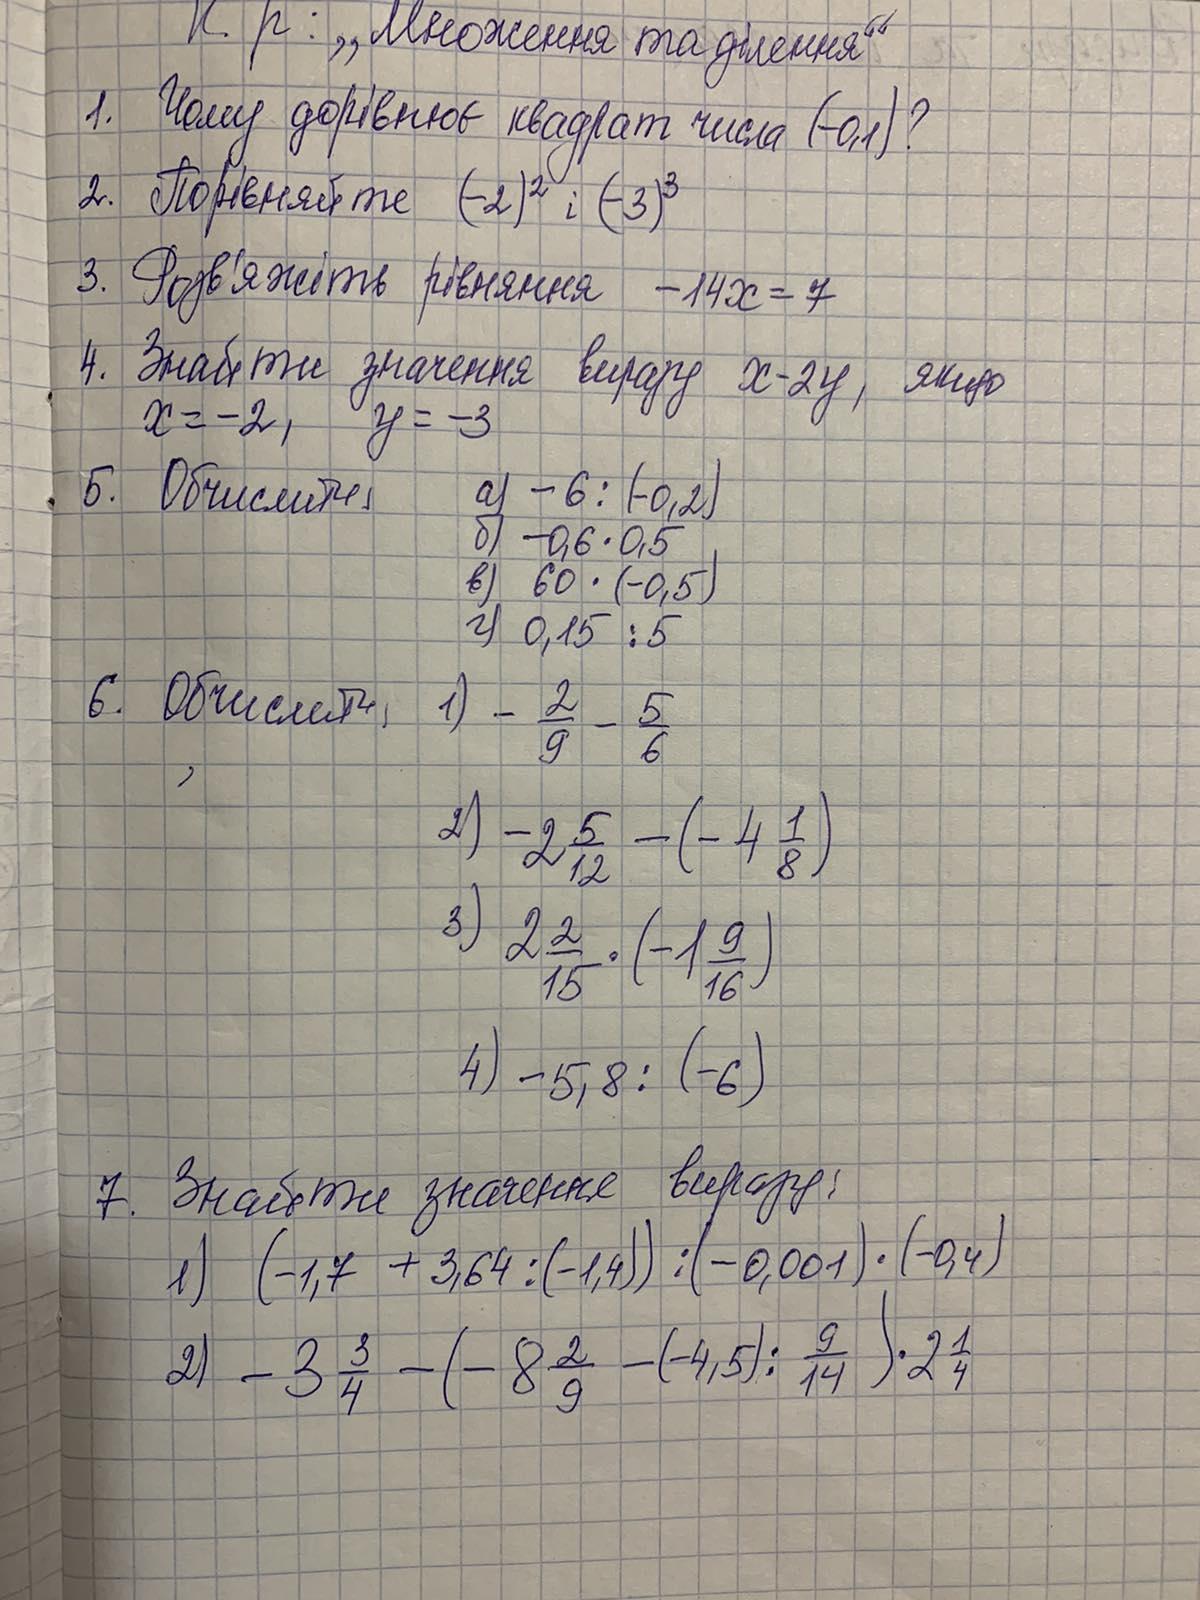 К. р: „Множення та ділення“
1. Чому дорівнює квадрат числа (-0,1)?
2. Порівняйте (-2)² і (-3)³
3. Розв'яжіть рівняння -14x = 7
4. Знайти значення виразу x-2y, якщо
x = -2, y = -3
5. Обчислити: а) -6 : (-0,2)
б) -0,6 · 0,5
в) 60 · (-0,5)
г) 0,15 : 5
6. Обчислити: 1) - 2/9 - 5/6
2) -2 5/12 - (-4 1/8)
3) 2 2/15 · (-1 9/16)
4) -5,8 : (-6)
7. Знайти значення виразу:
1) (-1,7 + 3,64 : (-1,4)) : (-0,001) · (-0,4)
2) -3 3/4 - (-8 2/9 - (-4,5) : 9/14) · 2 1/4